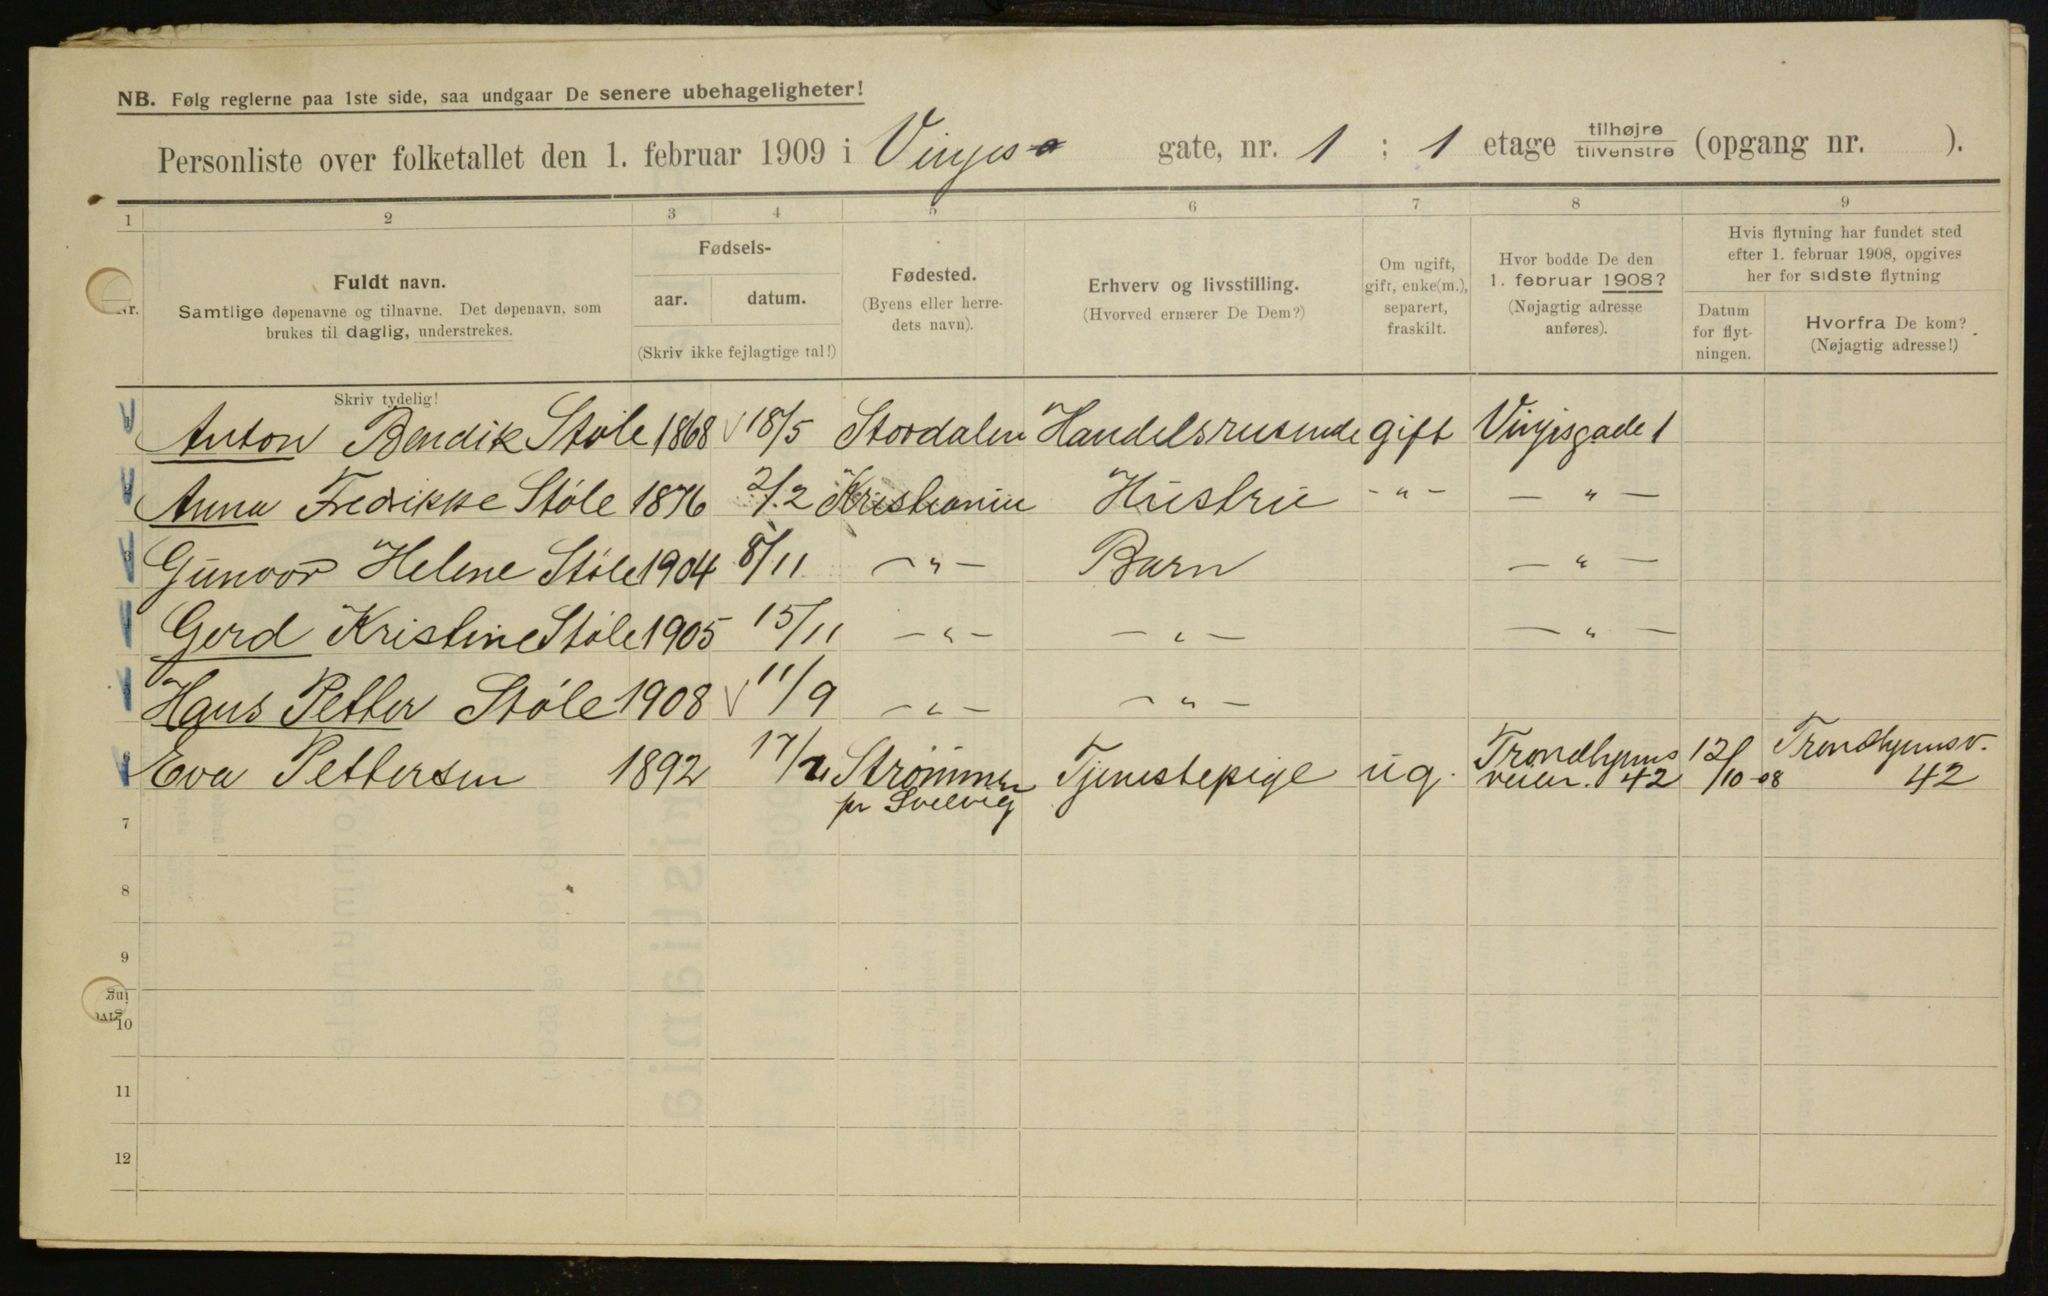 NB. Følg reglerne paa 1ste side, saa undgaar De senere ubehageligheter!
Personliste over folketallet den 1. februar 1909 i Vinjes gate, nr. 1 ; 1 etage tilhøjre tilvenstre (opgang nr. ).
1 2 3 4 5 6 7 8 9
Nr.
Fuldt navn.
Samtlige døpenavne og tilnavne. Det døpenavn, som
brukes til daglig, understrekes.
Fødsels-
aar. datum.
(Skriv ikke fejlagtige tal!)
Fødested.
(Byens eller herre-
dets navn).
Erhverv og livsstilling.
(Hvorved ernærer De Dem?)
Om ugift,
gift, enke(m.),
separert,
fraskilt.
Hvor bodde De den
1. februar 1908?
(Nøjagtig adresse
anføres).
Hvis flytning har fundet sted
efter 1. februar 1908, opgives
her for sidste flytning
Datum
for flyt-
ningen.
Hvorfra De kom?
(Nøjagtig adresse!)
Skriv tydelig!
Anton Bendik Støle 1868 18/5 Stordalen Handelsreisende gift Vinjesgade 1
Anna Fredrikke Støle 1876 2/2 Kristiania Hustru -"- -"-
3 Gunvor Helene Støle 1904 8/11 -"- Barn -"-
Gerd Kristine Støle 1905 15/11 -"- -"- -"-
Hans Petter Støle 1908 11/9 -"- -"-
Eva Pettersen 1892 17/ Strømmen Tjenestepige ug. Trondhjems 12/10-08 Trondhjemsv.
pr Svelvig veien. 42 42
7
8
9
10
11
12